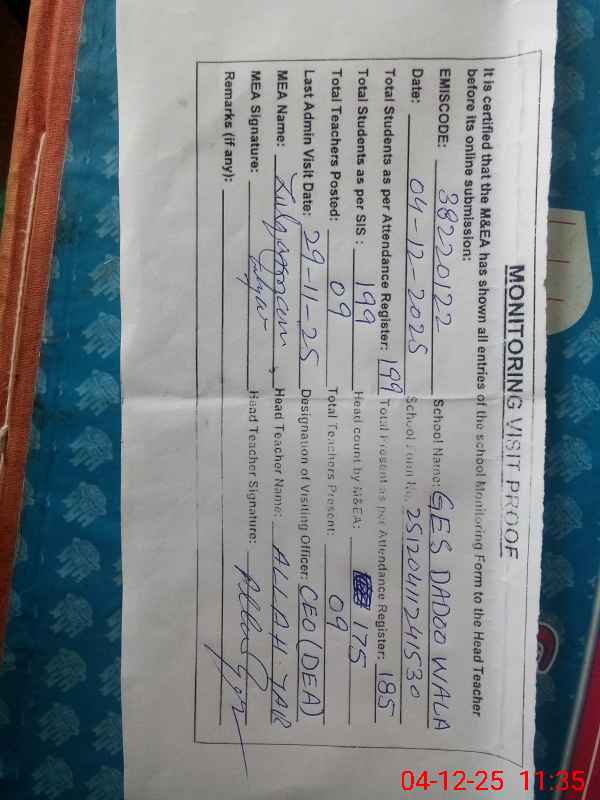 MONITORING VISIT PROOF
It is certified that the M&EA has shown all entries of the school Monitoring Form to the Head Teacher
before its online submission:
EMISCODE: 38220122 School Name: GES DADOO WALA
Date: 04-12-2025 School Form No. 25120411241530
Total Students as per Attendance Register: 199 Total Present as per Attendance Register: 185
Total Students as per SIS : 199 Head count by M&EA: 175
Total Teachers Posted: 09 Total Teachers Present: 09
Last Admin Visit Date: 29-11-25 Designation of Visiting Officer: CEO (DEA)
MEA Name: Head Teacher Name: ALLAH YAR
MEA Signature: Head Teacher Signature:
Remarks (if any):
04-12-25 11:35